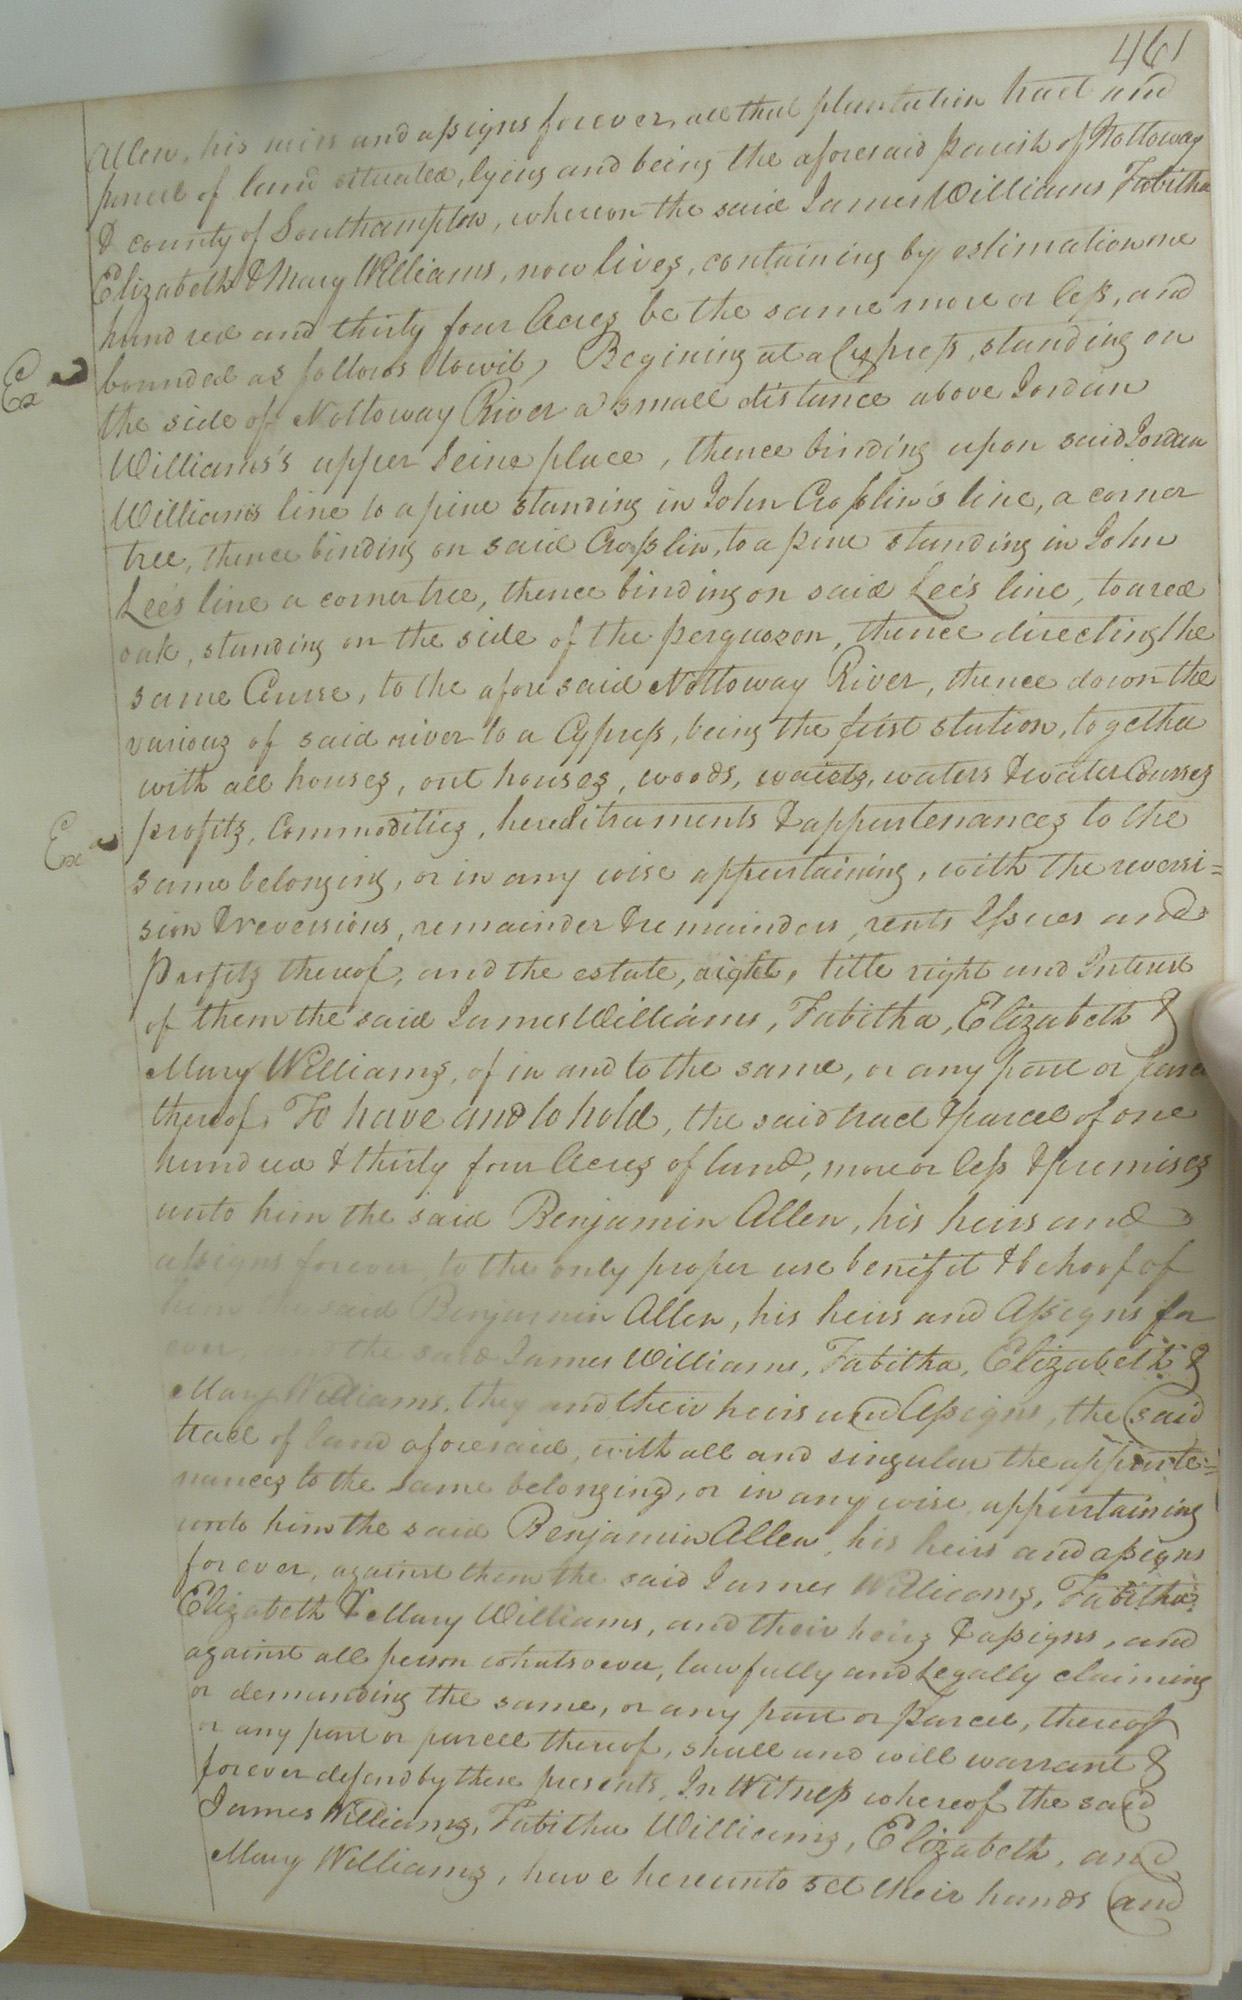 461
Allen, his heirs and assigns forever, all that plantation tract and
parcel of land situated, lying and being the aforesaid parish of Nottoway
& county of Southampton, whereon the said James Williams Tabitha
Elizabeth & Mary Williams, now lives, containing by estimation one
hundred and thirty four Acres be the same more or less, and
bounded as follows towit, Begining at a Cypress, standing on
Ex
the side of Nottoway River a small distance above Jordan
Williams's upper Seine place, thence binding upon said Jordan
Williams line to a pine standing in John Crosslin's line, a corner
tree, thence binding on said Crosslin, to a pine standing in John
Lee's line a corner tree, thence binding on said Lee's line, to a red
oak, standing on the side of the perquoson, thence directing the
same Course, to the afore said Nottoway River, thence down the
various of said river to a Cypress, being the first station, together
with all houses, out houses, woods, waists, waters & water Courses
profits, Commodities, hereditraments & appurtenances to the
Ex
same belonging, or in any wise appurtaining, with the reversi=
sion & reversions, remainder & remainders, rents Issues and
Profits thereof, and the estate, right, title right and Interest
of them the said James Williams, Tabitha, Elizabeth &
Mary Williams, of in and to the same, or any part or parcel
thereof, To have and to hold, the said tract & parcel of one
hundred & thirty four Acres of land, more or less & premises
unto him the said Benjamin Allen, his heirs and
assigns forever to the only proper use benifit & behoof of
him the said Benjamin Allen, his heirs and Assigns for
ever, the said James Williams, Tabitha, Elizabeth &
Mary Williams, they and their heirs and Assigns, the said
tract of land aforesaid, with all and singular the appurte=
nances to the same belonging, or in any wise appurtaining
unto him the said Benjamin Allen, his heirs and assigns
forever, against them the said James Williams, Tabitha
Elizabeth & Mary Williams, and their heirs & assigns, and
against all person whatsoever, lawfully and Legally claiming
or demanding the same, or any part or parcel, thereof
or any part or parcell thereof, shall and will warrant &
forever defend by these presents, In Witness whereof the said
James Williams, Tabitha Williams, Elizabeth, and
Mary Williams, have hereunto set their hands and